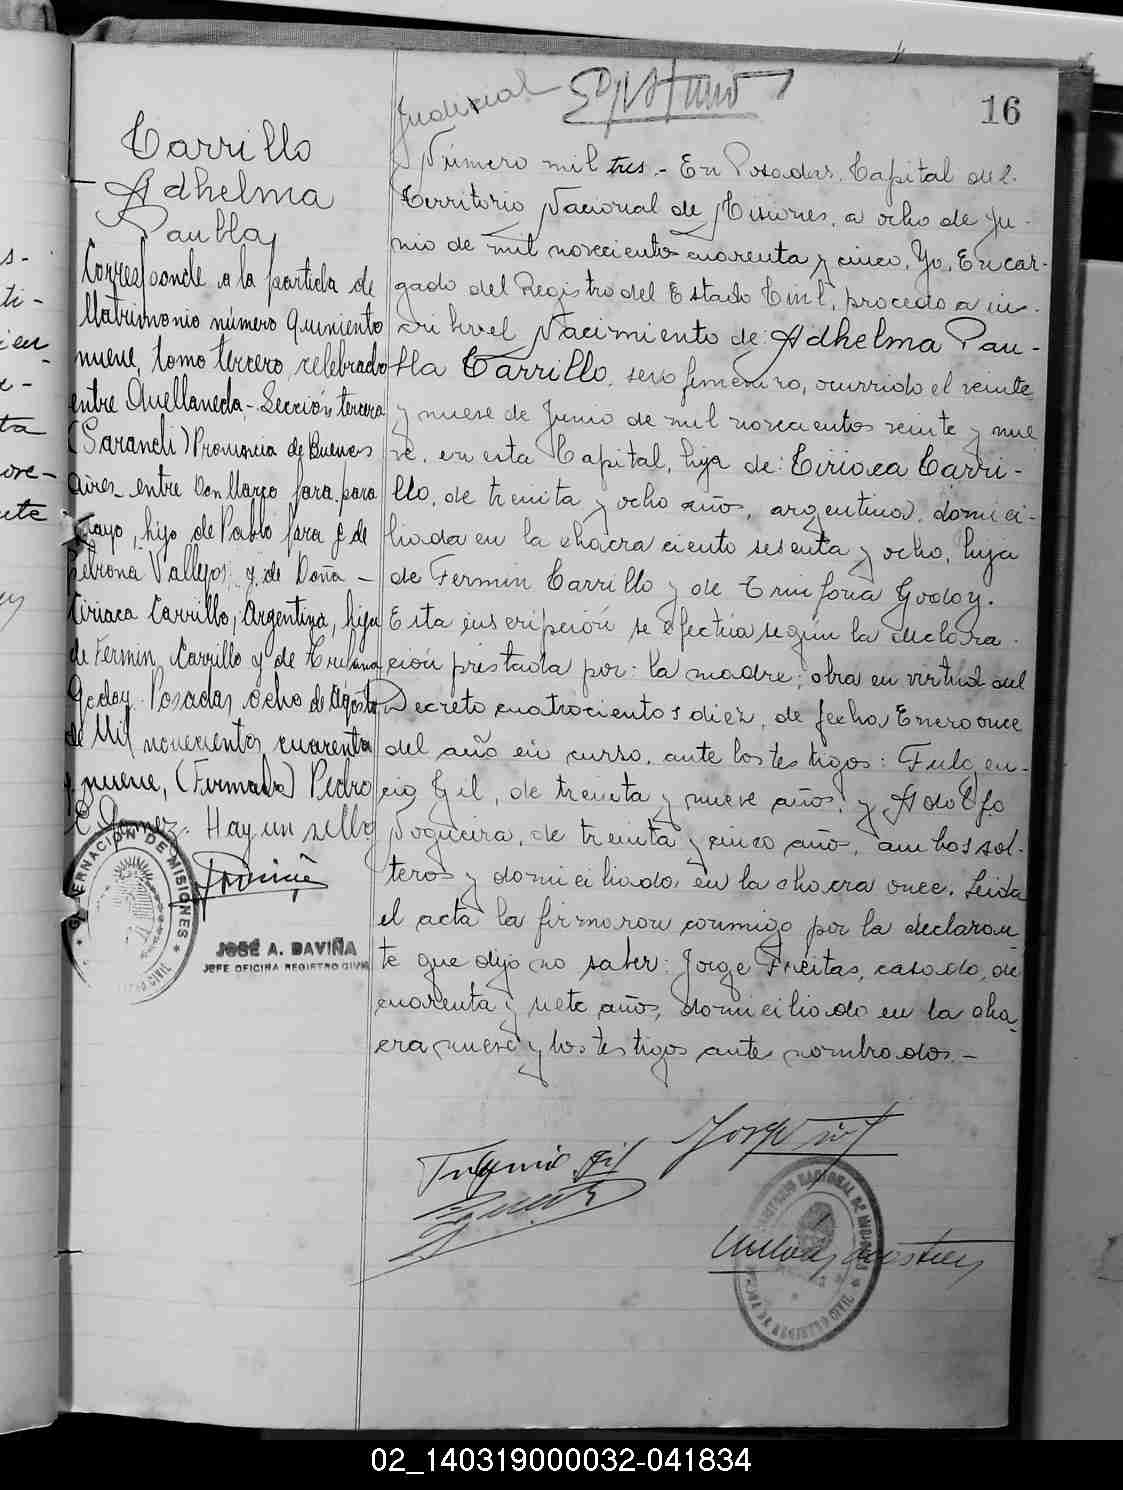 Judicial
16
Carrillo
Adhelma
Paubla
Corresponde a la partida de
Matrimonio número Quiniento
nueve, tomo tercero, celebrado
entre Avellaneda - Sección tercera
(Sarandi) Provincia de Buenos
Aires - entre Don Marco Jara, para
guayo, hijo de Pablo Jara y de
Petrona Vallejos, y de Doña -
Ciriaca Carrillo, Argentina, hija
de Fermin Carrillo y de
Godoy. Posadas, ocho de Agosto
de Mil novecientos cuarenta
y nueve, (Firmado) Pedro
E. Gomez. Hay un sello
GOBERNACION DE MISIONES
REGISTRO CIVIL
JOSÉ A. DAVIÑA
JEFE OFICINA REGISTRO CIVIL
Número mil tres.- En Posadas, Capital del
Territorio Nacional de Misiones, a ocho de Ju-
nio de mil novecientos cuarenta y cinco, Yo, Encar-
gado del Registro del Estado Civil, procedo a ins-
cribir el Nacimiento de: Adhelma Pau-
bla Carrillo, sexo femenino, ocurrido el veinte
y nueve de Junio de mil novecientos veinte y nue
ve, en esta Capital, hija de: Ciriaca Carri-
llo, de treinta y ocho años, argentina, domici-
liada en la chacra ciento sesenta y ocho, hija
de Fermin Carrillo y de Trinforia Godoy.
Esta inscripción se efectúa según la declara-
ción prestada por: la madre; obra en virtud del
Decreto cuatrocientos diez, de fecha Enero once
del año en curso, ante los testigos: Fulgen-
cio Gil, de treinta y nueve años, y Adolfo
Nogueira, de treinta y cinco años, ambos sol-
teros y domiciliados en la chacra once. Leida
el acta la firmaron conmigo por la declaran-
te que dijo no saber: Jorge Freitas, casado, de
cuarenta y siete años, domiciliado en la cha-
cra nueve y los testigos antes nombrados.-
Fulgencio Gil
TERRITORIO NACIONAL DE MISIONES
REGISTRO CIVIL
02_140319000032-041834